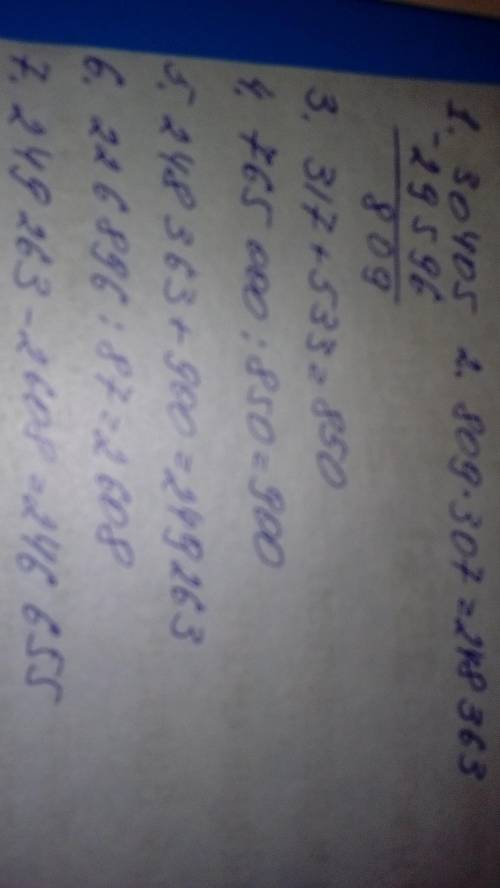 1. 30405 2. 809·307=248 363
-29 596
809
3. 317+533=850
4. 765 000:850=900
5. 248 363+900=249 263
6. 226 896:87=2 608
7. 249 263-2 608=246 655